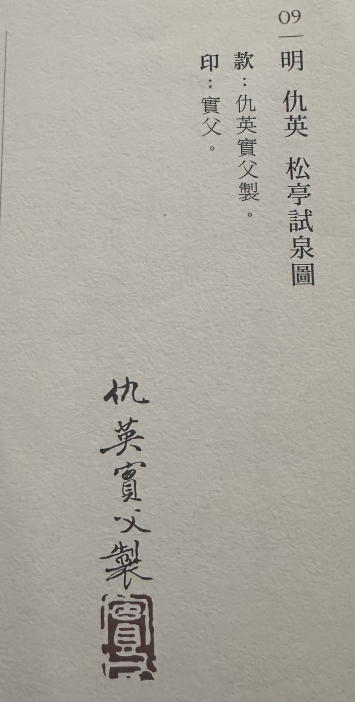 09
明 仇英 松亭試泉圖
款：仇英實父製。
印：實父。
仇英實父製
實父